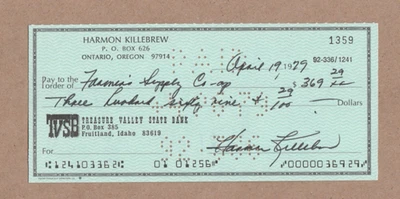 HARMON KILLEBREW
P. O. BOX 626
ONTARIO, OREGON 97914
1359
April 19, 1979 92-336/1241
Pay to the order of Farmers Supply Co-op $ 369 29/xx
Three hundred sixty nine & 29/100 Dollars
TVSB TREASURE VALLEY STATE BANK
P.O. Box 385
Fruitland, Idaho 83619
For Harmon Killebrew
⑆124103362⑆ 01 01256⑈ ⑈0000036929⑈